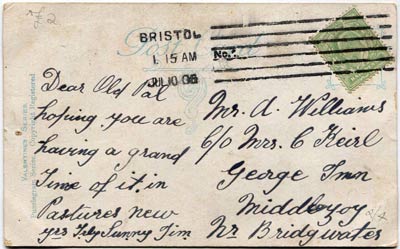 BRISTOL
1. 15 AM
JUL 10 06
No.
Post Card
VALENTINE'S SERIES
Dear Old Pal
hoping you are
having a grand
Time of it. in
Pastures new
yrs Tily Sunny Jim
Mr. A. Williams
c/o Mrs. C Keirl
George Inn
Middlezoy
Nr Bridgwater